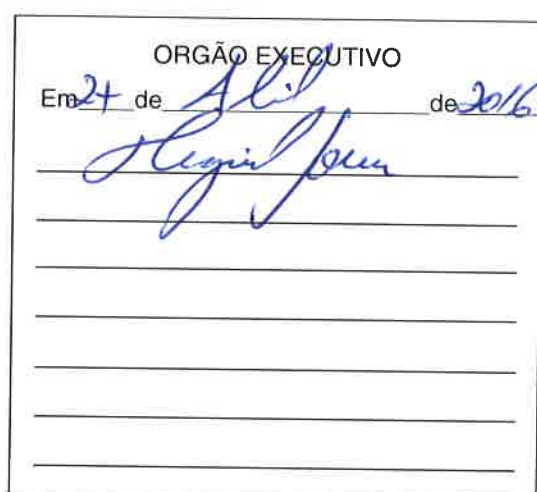 ORGÃO EXECUTIVO
Em de Abril de 2016